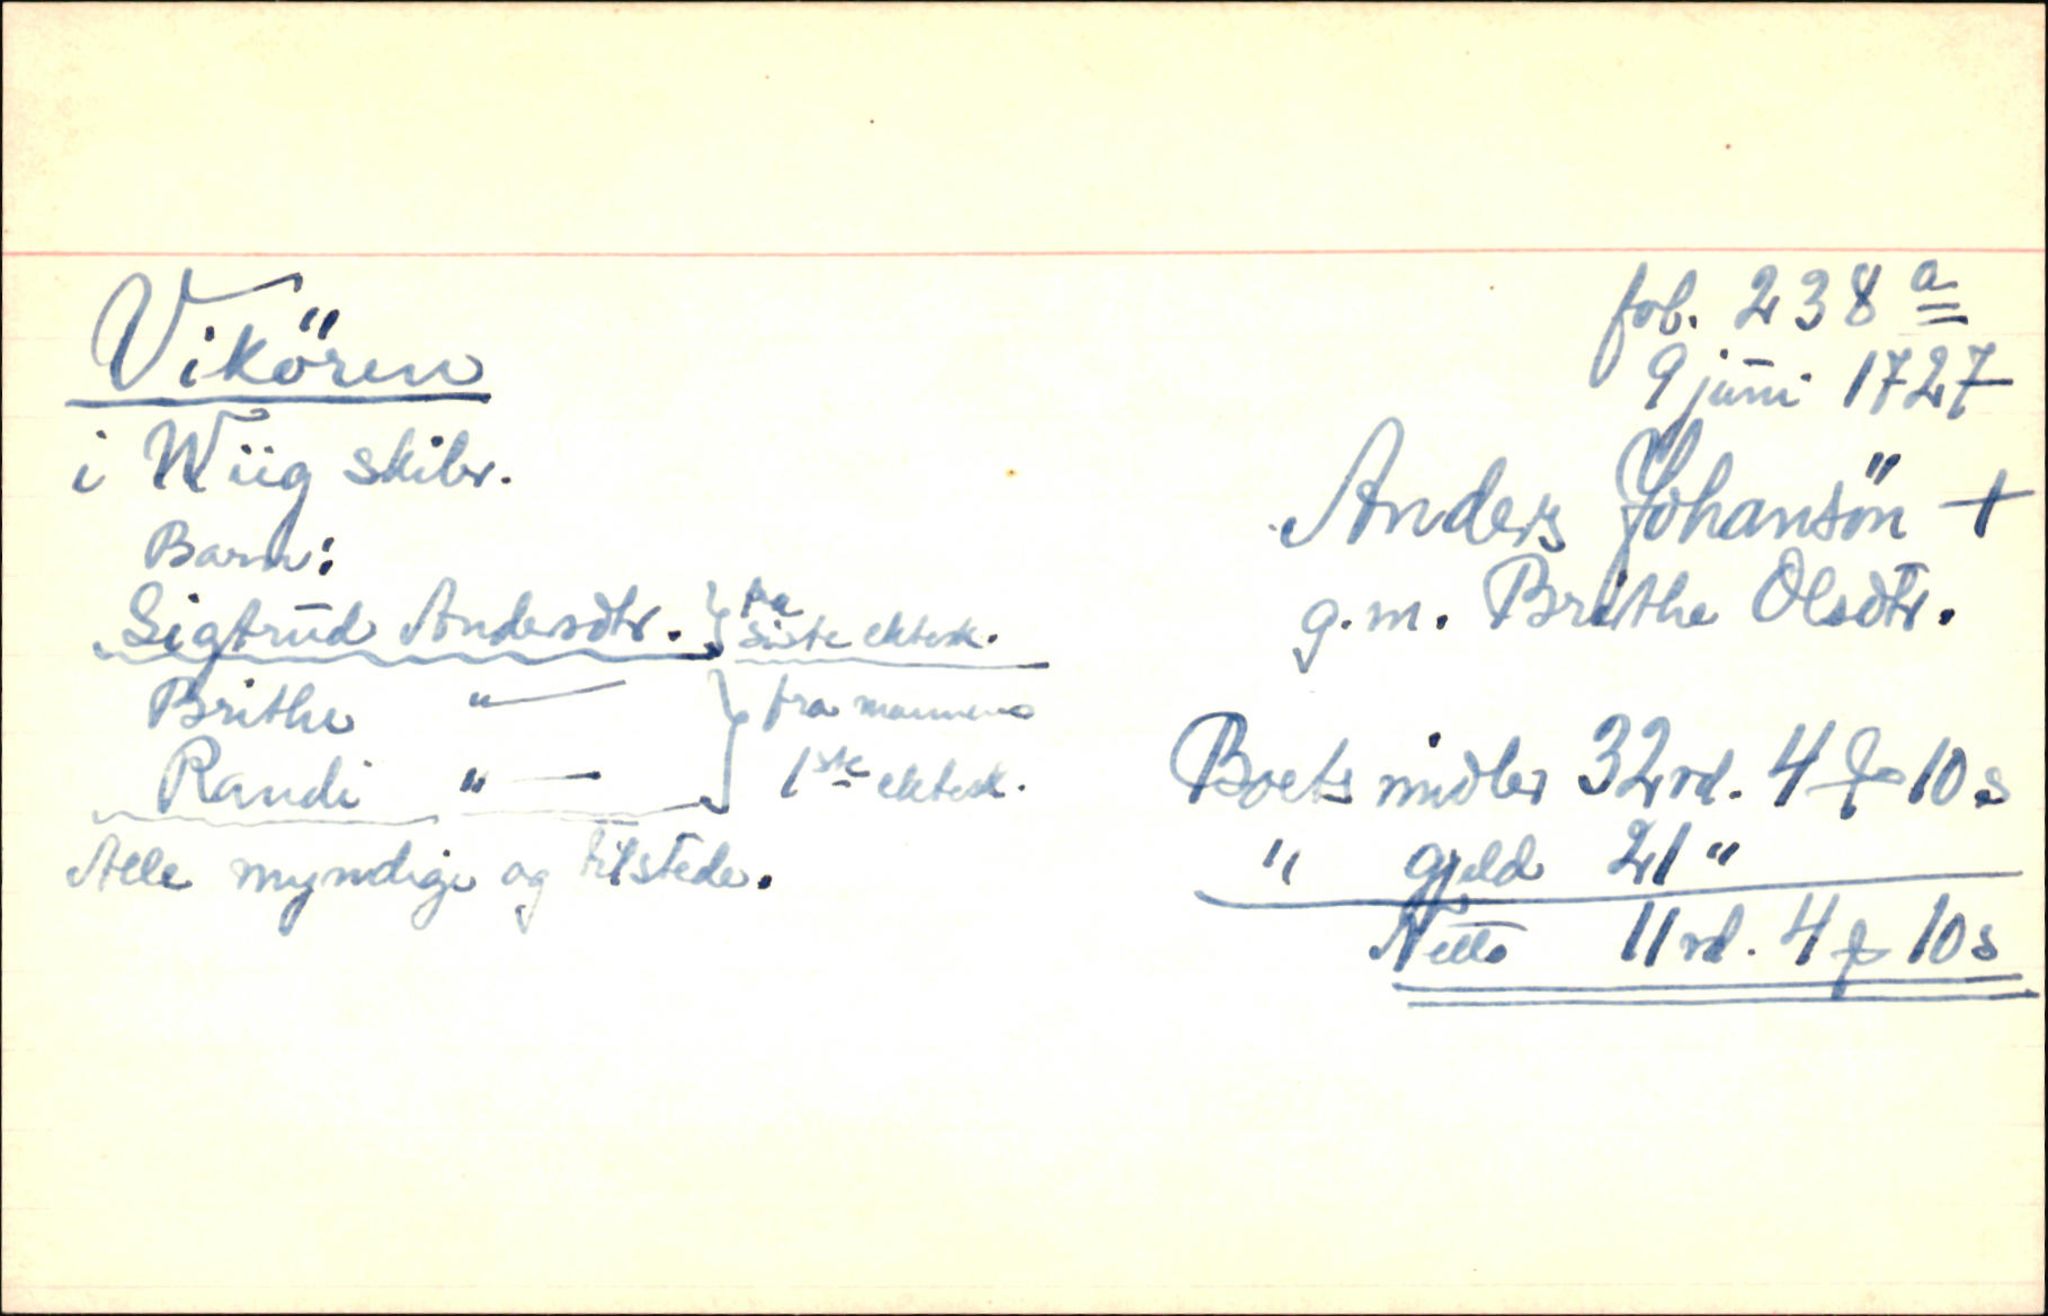 Vikören
i Wiig skibr.
Barn:
Sigtrud Andersdtr. } fra siste ektesk.
Brithe " — } fra mannens
Randi " — 1ste ektesk.
Alle myndige og tilstede.
fol. 238 a
9 juni 1727
Anders Johansön +
g.m. Brithe Olsdtr.
Boets midler 32 rd. 4 10 s
" gjeld 21 "
Netto 11 rd. 4 10 s